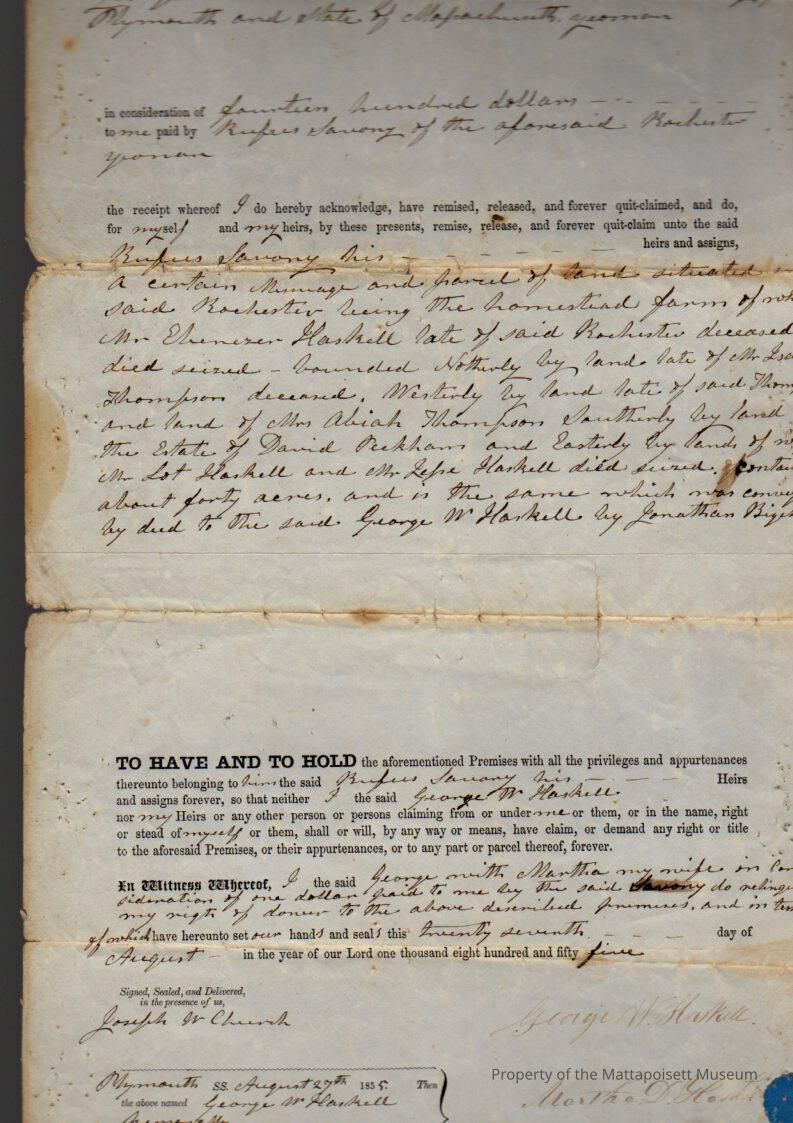 Plymouth and State of Massachusetts yeoman
in consideration of fourteen hundred dollars - - - - -
to me paid by Rufus Savory of the aforesaid Rochester
yeoman
the receipt whereof I do hereby acknowledge, have remised, released, and forever quit-claimed, and do,
for myself and my heirs, by these presents, remise, release, and forever quit-claim unto the said
heirs and assigns,
Rufus Savory his - - - - - -
A certain Messuage and parcel of land situated in
said Rochester being the homestead farm of wh
Mr Ebenezer Haskell late of said Rochester deceased
died seized - bounded Notherly by land late of Mr Isa
Thompson deceased. Westerly by land late of said Thom
and land of Mrs Abiah Thompson Southerly by land
the Estate of David Peckham and Easterly by lands of
Mr Lot Haskell and Mr Jesse Haskell died seized. contai
about forty acres. and is the same which was convey
by deed to the said George W Haskell by Jonathan Bige
TO HAVE AND TO HOLD the aforementioned Premises with all the privileges and appurtenances
thereunto belonging to him the said Rufus Savory his - - - Heirs
and assigns forever, so that neither I the said George W Haskell
nor my Heirs or any other person or persons claiming from or under me or them, or in the name, right
or stead of myself or them, shall or will, by any way or means, have claim, or demand any right or title
to the aforesaid Premises, or their appurtenances, or to any part or parcel thereof, forever.
In Witness Whereof, I the said George with Martha my wife in con
sideration of one dollar paid to me by the said Savory do relinq
my right of dower to the above described premises. and in tes
of which have hereunto set our hands and seals this twenty seventh - - - day of
August - in the year of our Lord one thousand eight hundred and fifty five
Signed, Sealed, and Delivered,
in the presence of us,
Joseph W Church
George W. Haskell.
Property of the Mattapoisett Museum
Plymouth SS. August 27th 1855. Then
the above named George W Haskell
Martha D. Haskell